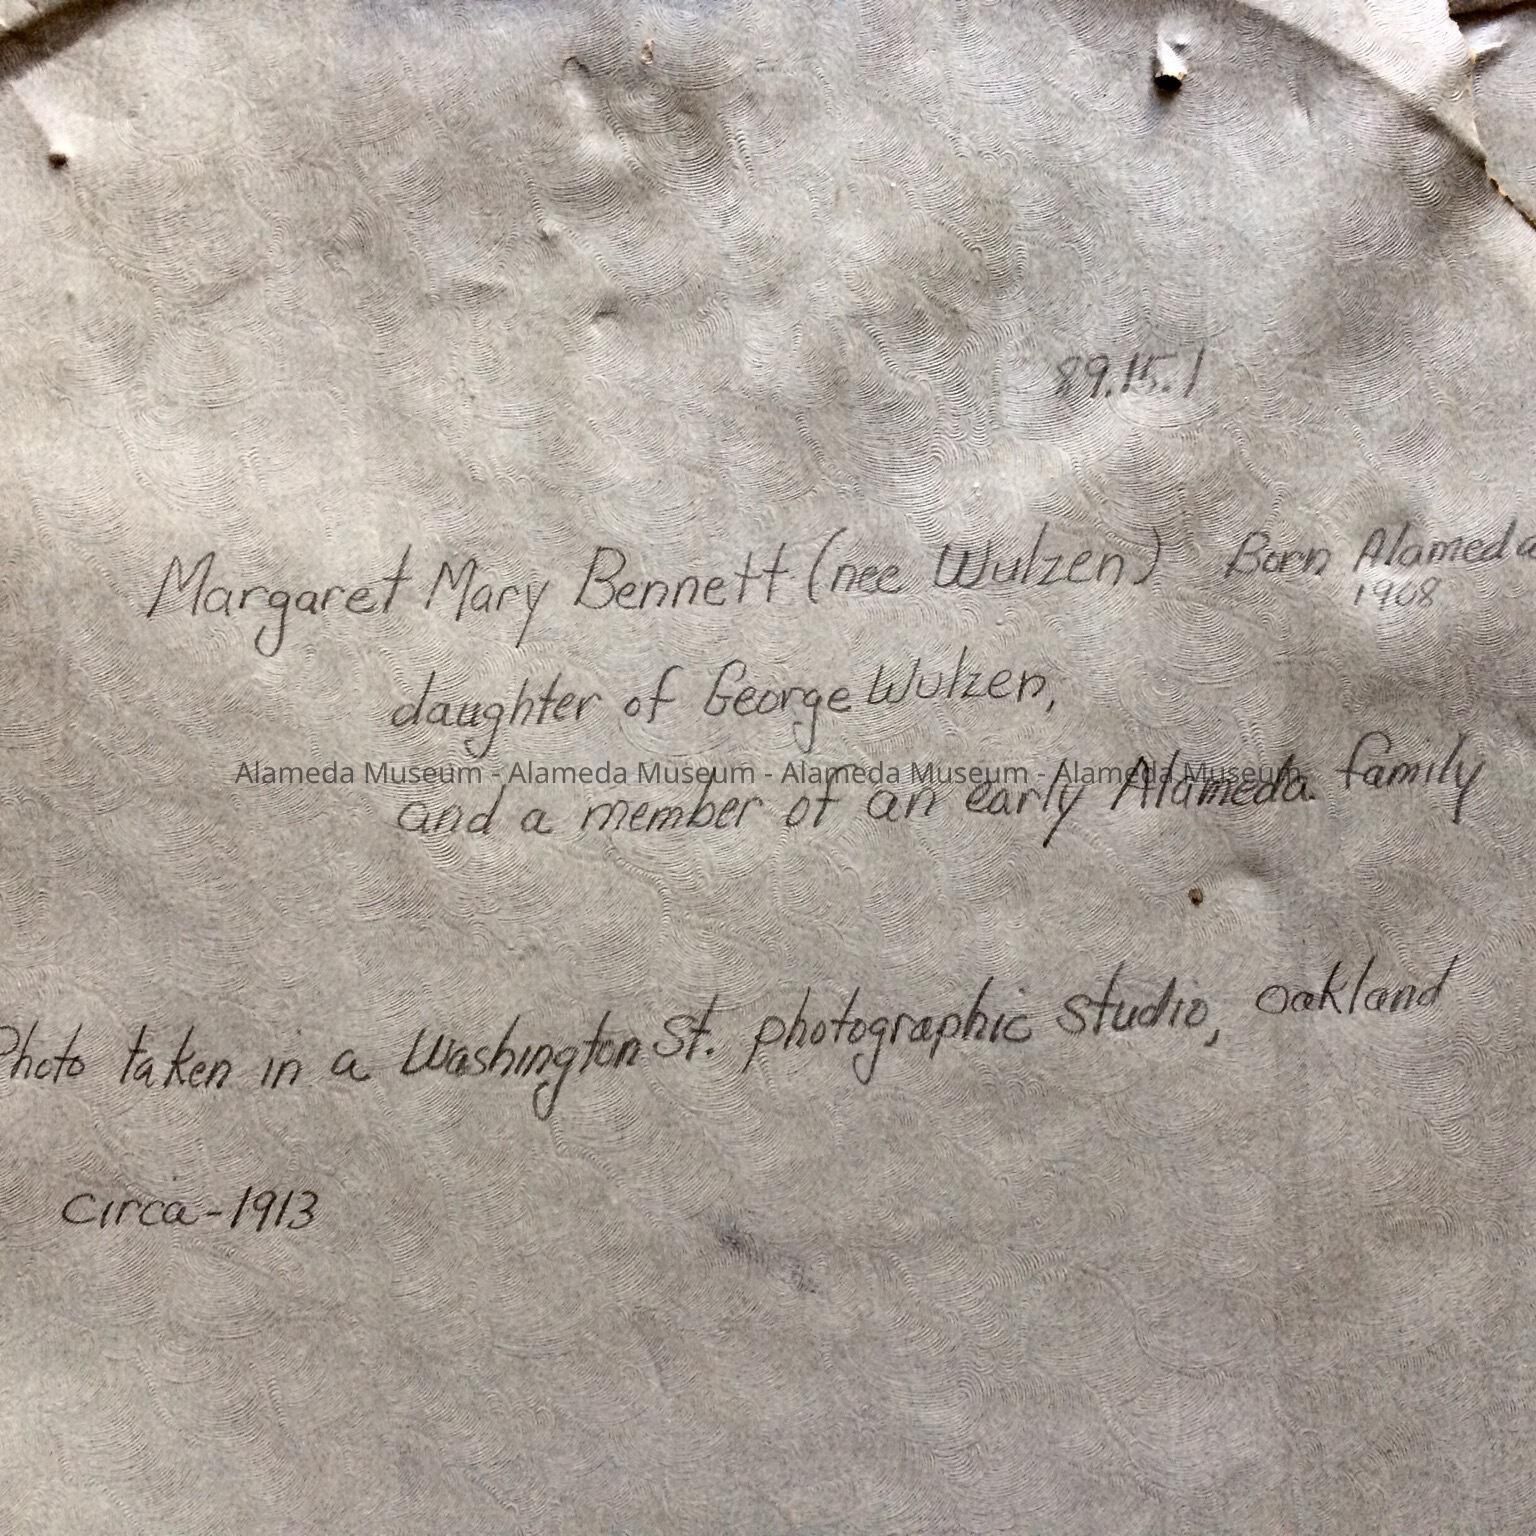 89.15.1
Margaret Mary Bennett (nee Wulzen) Born Alameda
1908
daughter of George Wulzen,
Alameda Museum - Alameda Museum - Alameda Museum - Alameda Museum
and a member of an early Alameda family
Photo taken in a Washington St. photographic studio, Oakland
circa-1913